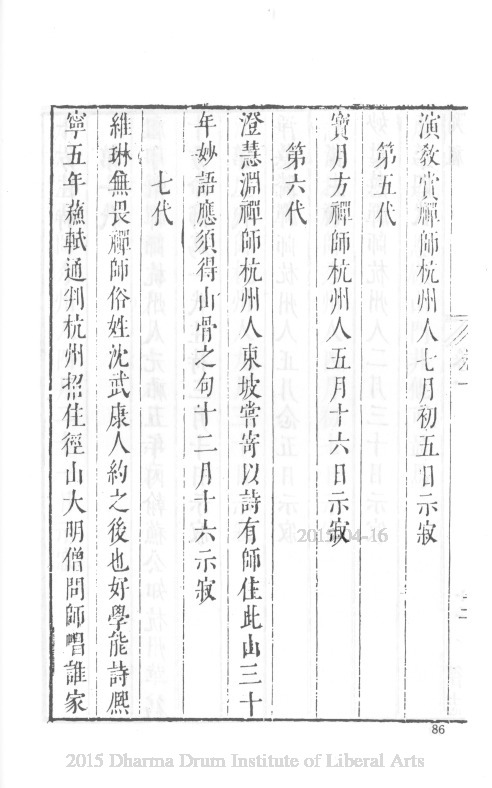 演敎賞禪師杭州人七月初五日示寂
第五代
寶月方禪師杭州人五月十六日示寂
第六代
澄慧淵禪師杭州人東坡嘗寄以詩有師住此山三十
年妙語應須得山骨之句十二月十六示寂
七代
維琳無畏禪師俗姓沈武康人約之後也好學能詩熈
寧五年蘓軾通判杭州招住徑山大明僧問師唱誰家
2015-04-16
86
2015 Dharma Drum Institute of Liberal Arts